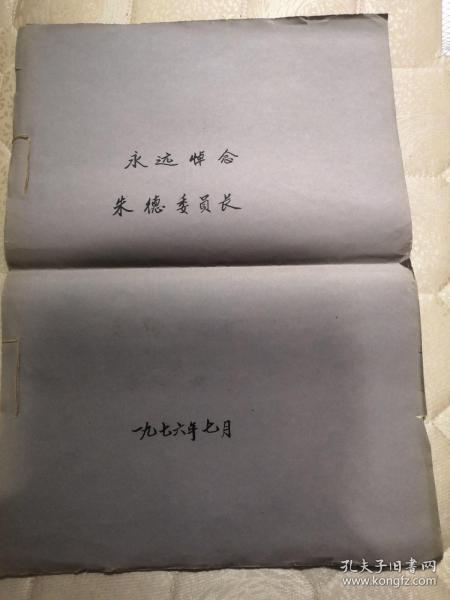 永远悼念
朱德委员长
一九七六年七月
孔夫子旧书网
www.kongfz.com